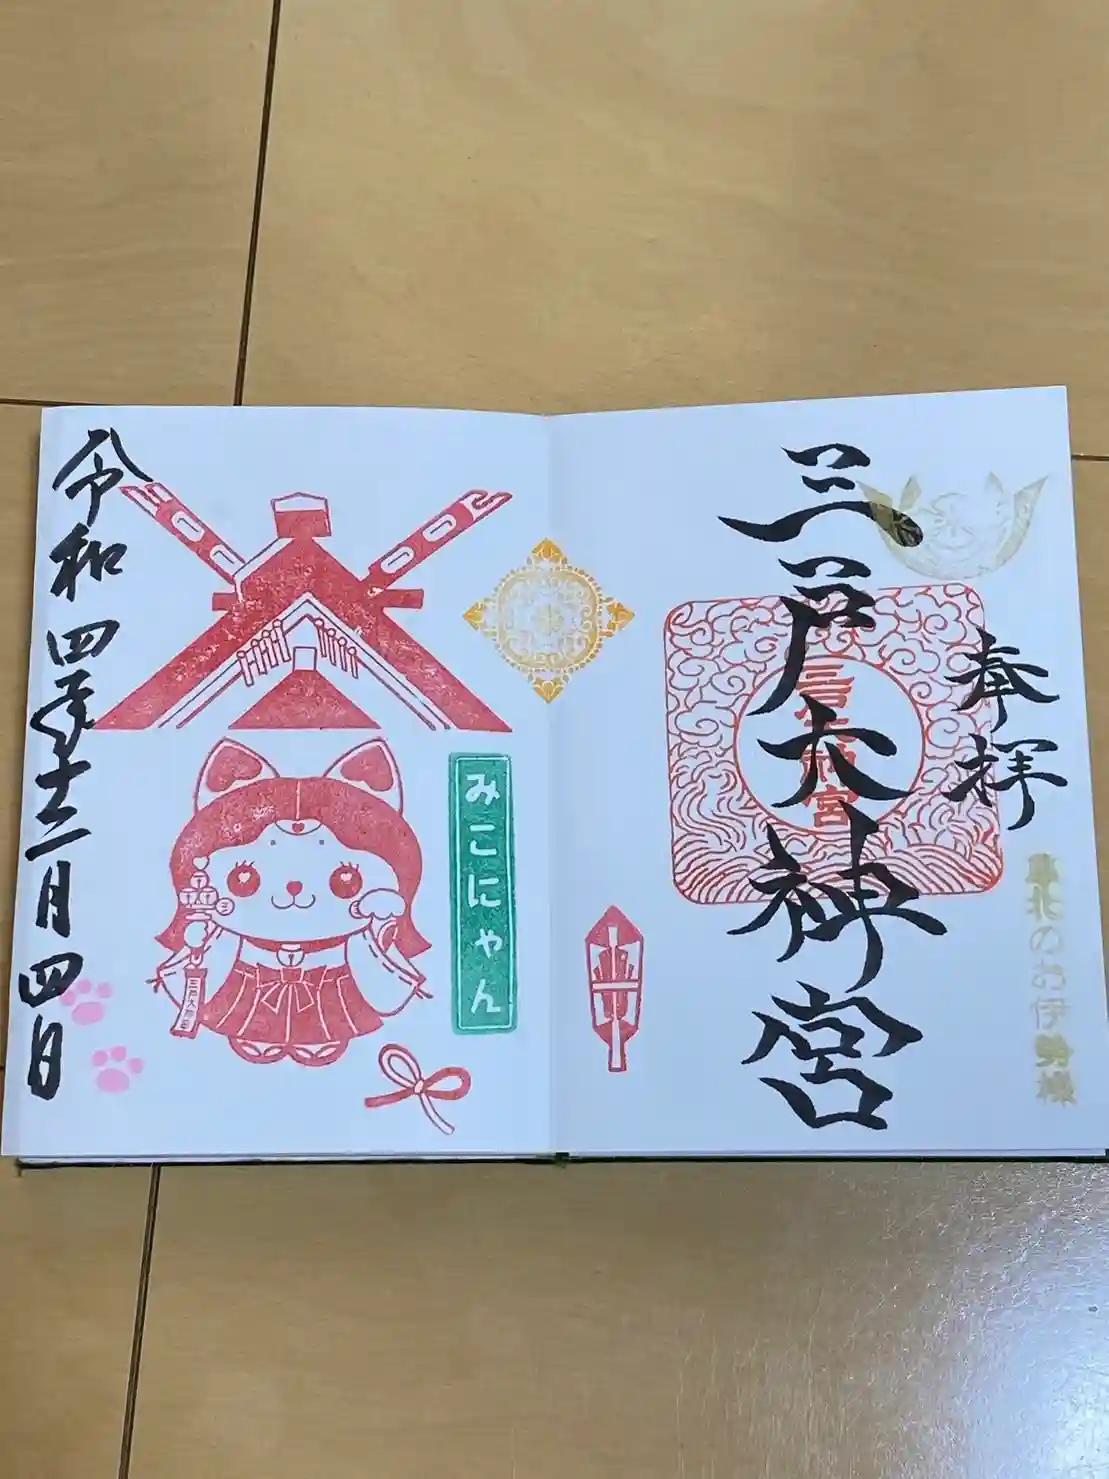 奉拝
三戸大神宮
三戸大神宮
東北のお伊勢様
みこにゃん
三戸大神宮
令和四年十二月四日